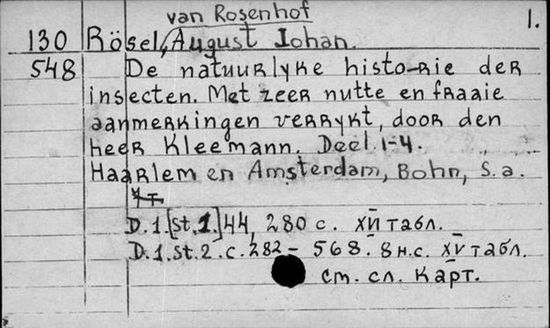 van Rosenhof
1.
130 Rösel, August Johan.
548 De natuurlyke historie der
insecten. Met zeer nutte en fraaie
aanmerkingen verrykt, door den
heer Kleemann. Deel. 1-4.
Haarlem en Amsterdam, Bohn, s.a.
D.1.[St.1.] 44, 280 с. XVI табл.
D.1.St.2.с.282 - 568. 8 н.с. XV табл.
см. сл. карт.